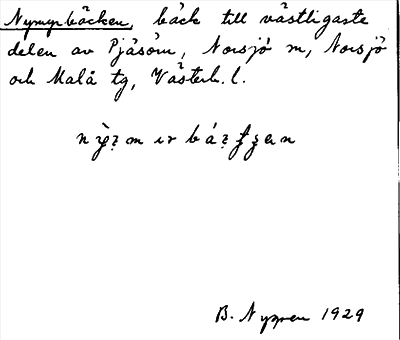 Nymyrbäcken, bäck till västligaste
delen av Pjäsörn, Norsjö sn, Norsjö
och Malå tg, Västerb. l.
B. Nygren 1929